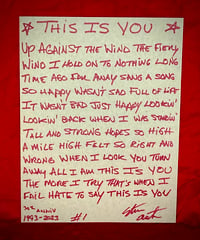 THIS IS YOU
UP AGAINST THE WIND THE FIERY
WIND I HOLD ON TO NOTHING LONG
TIME AGO FAR AWAY SANG A SONG
SO HAPPY WASN'T SAD FULL OF HATE
IT WASN'T BAD JUST HAPPY LOOKIN'
LOOKIN' BACK WHEN I WAS STANDIN'
TALL AND STRONG HOPES SO HIGH
A MILE HIGH FELT SO RIGHT AND
WRONG WHEN I LOOK YOU TURN
AWAY ALL I AM THIS IS YOU
THE MORE I TRY THAT'S WHEN I
FAIL HATE TO SAY THIS IS YOU
ANNIV
1993-2023 #1